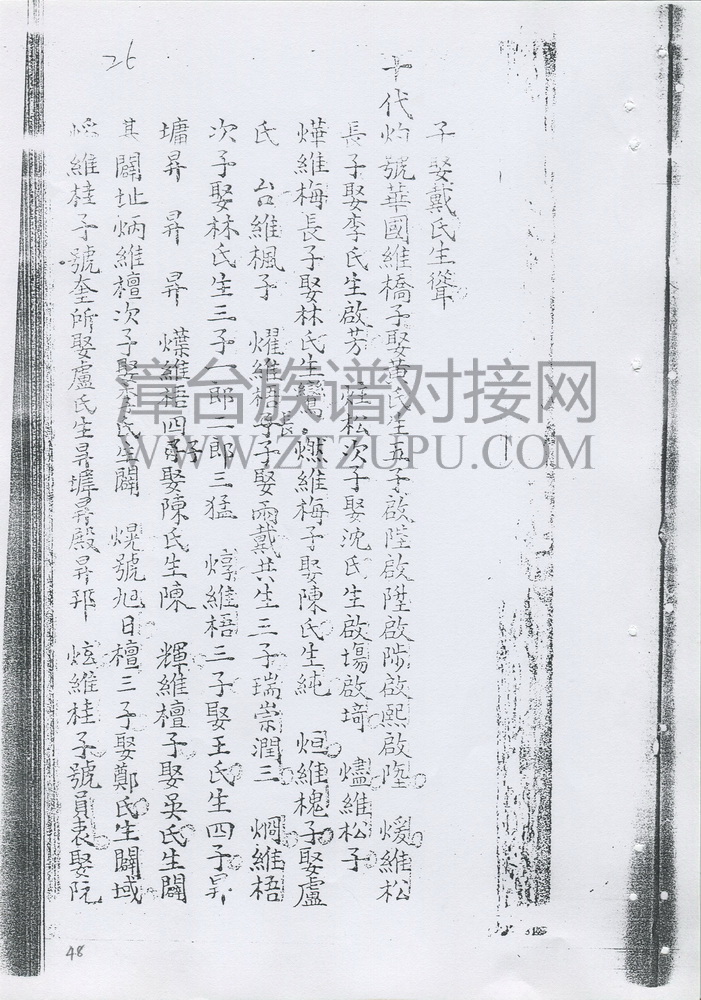 26
子娶戴氏生聳
十代灼號華國維橋子娶黃氏生五子啟陞啟陛啟陟啟熙啟隆 煖維松
長子娶李氏生啟芳 松次子娶沈氏生啟場啟埼 燼維松子
燁維梅長子娶林氏生鸞 燃維梅子娶陳氏生純 烜維槐子娶盧
氏 台維楓子 燿維梧長子娶兩戴共生三子瑞崇潤三 炯維梧
次子娶林氏生三子一郎二郎三猛 焞維梧三子娶王氏生四子昇
墉昇 昇 昇 燡維梧四子娶陳氏生陳 輝維檀子娶吳氏生闢
其闢址炳維檀次子娶李氏生闢 熀號旭日檀三子娶鄭氏生闢域
維桂子號奎所娶盧氏生昇墀昇殿昇邦 炫維桂子號員衷娶阮
48
漳台族谱对接网
WWW.ZTZUPU.COM